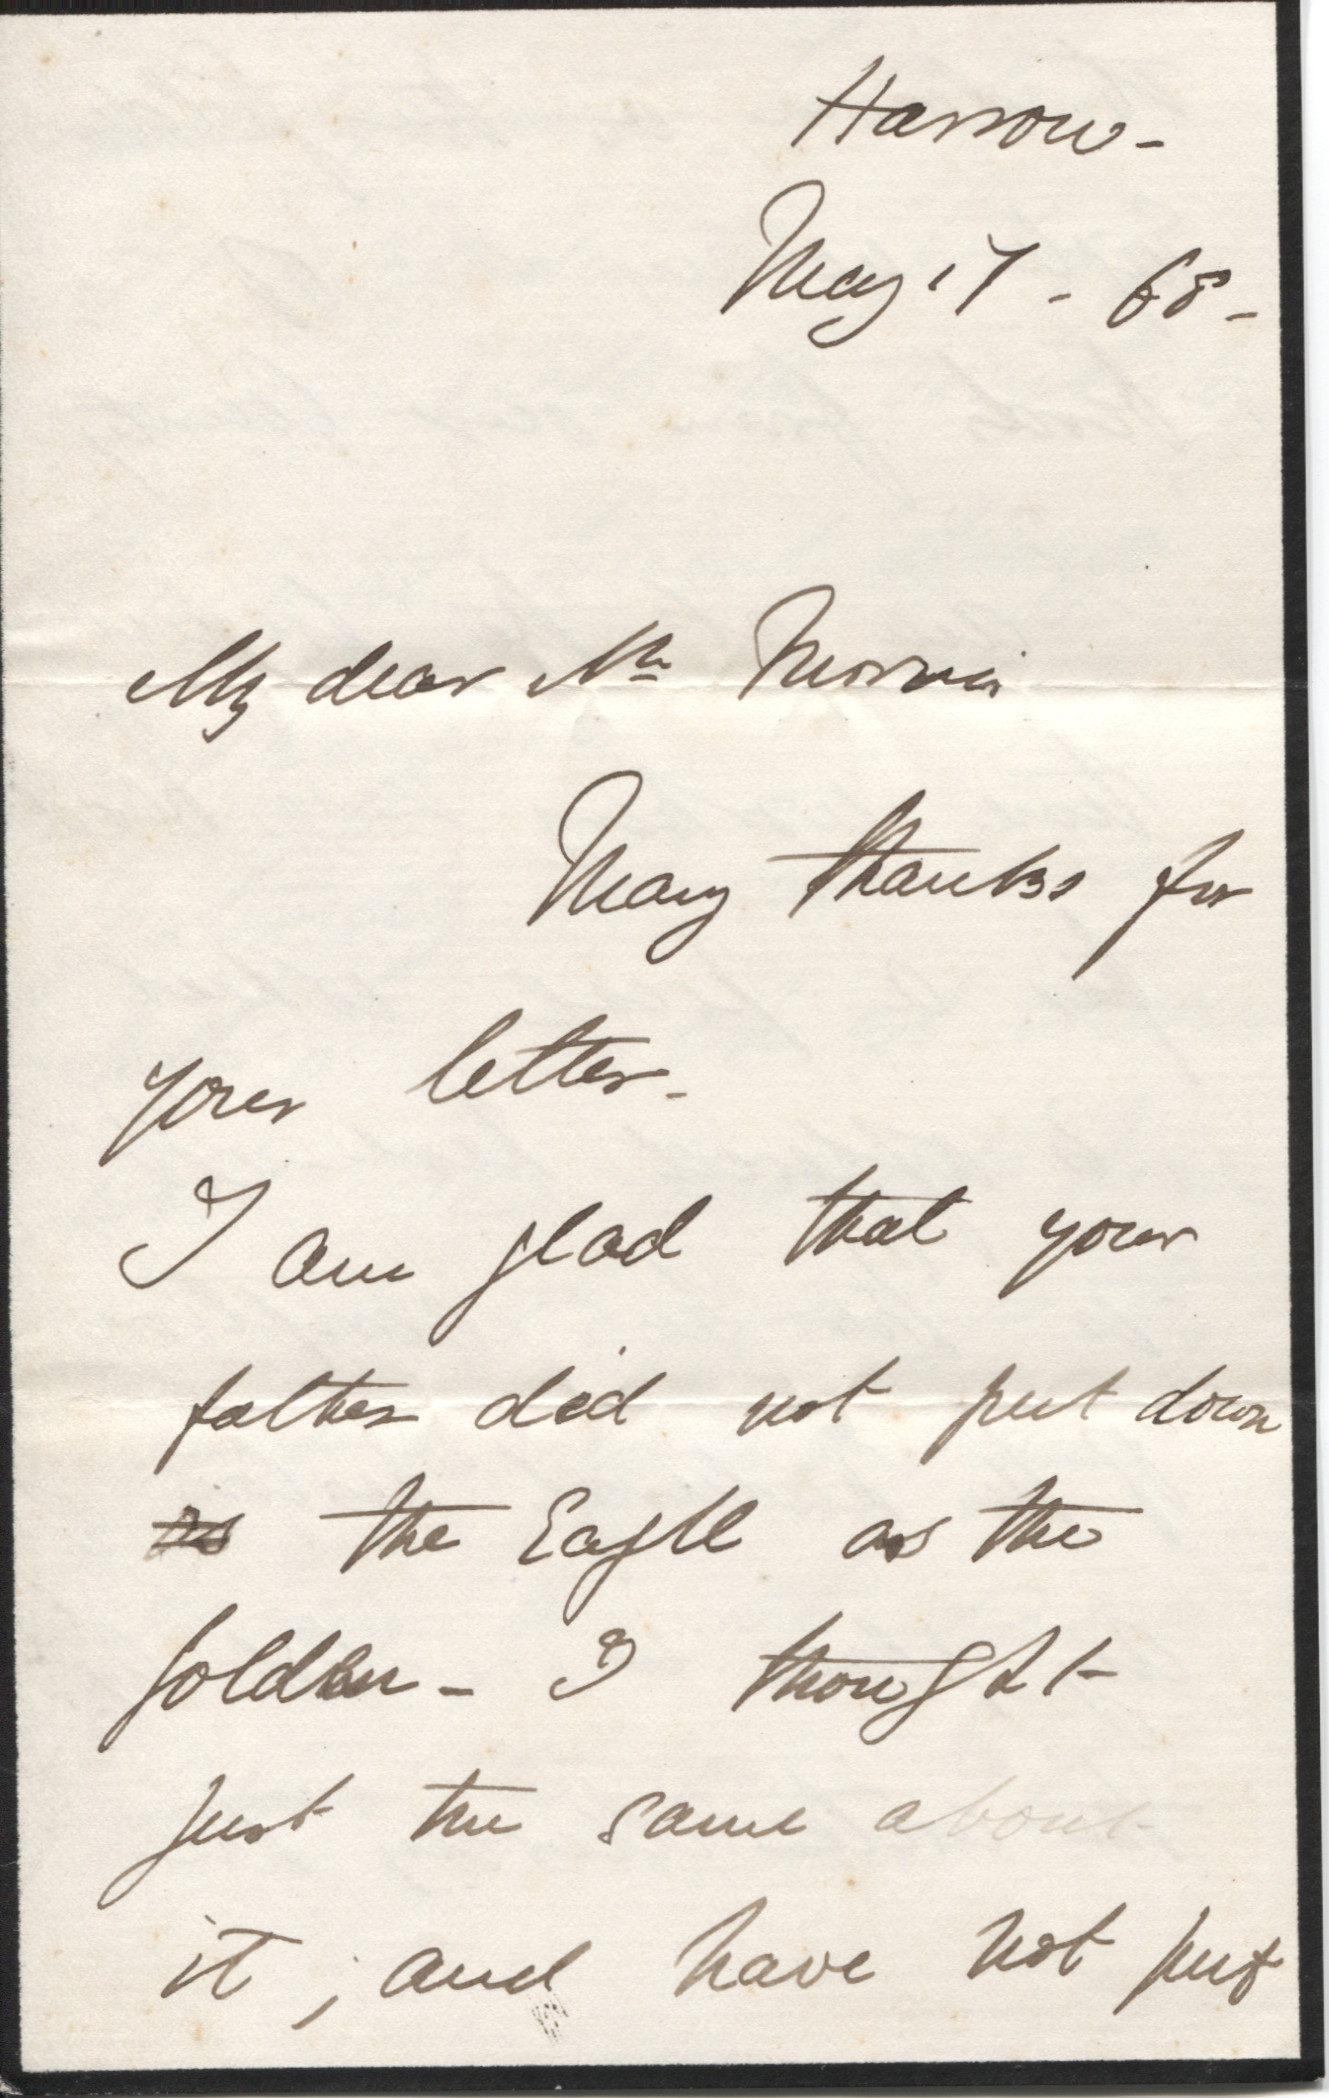 Harrow-
May 17 - 68-
My dear Mr Norris
Many thanks for
your letter-
I am glad that your
father did not put down
as the Eagle as the
golden - I thought
just the same about
it, and have not put